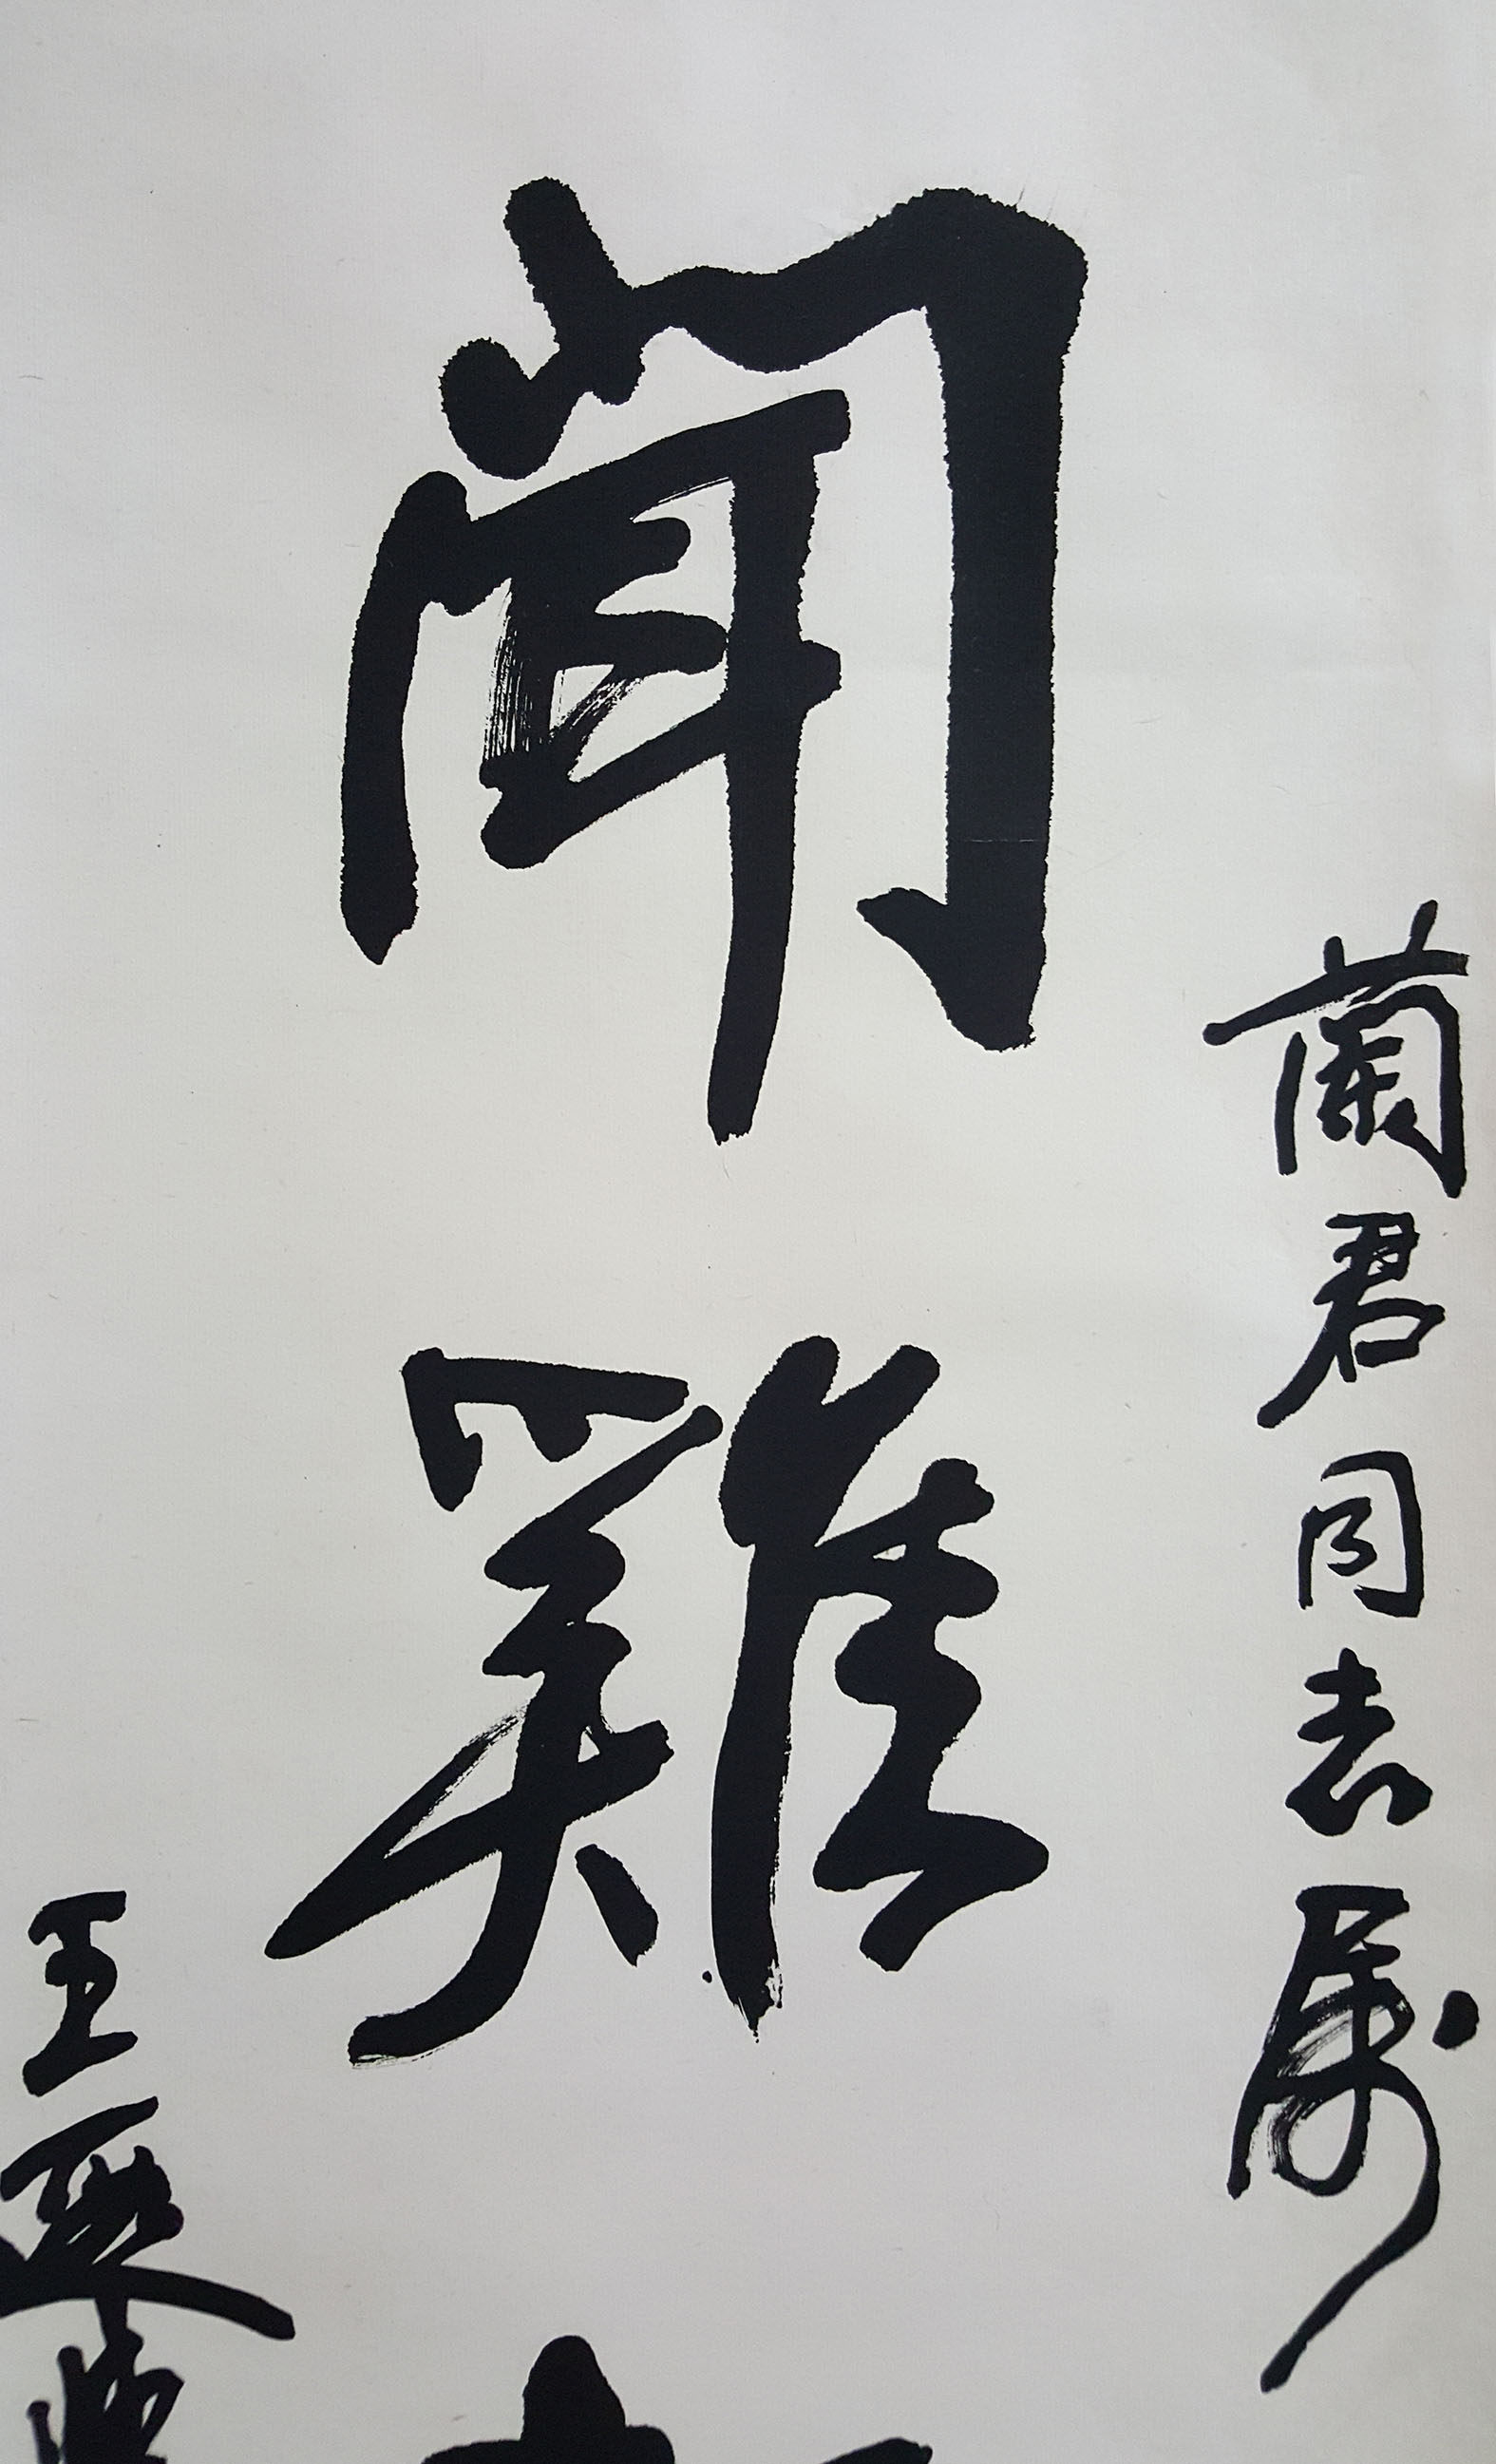 蘭君同志属
聞雞
王